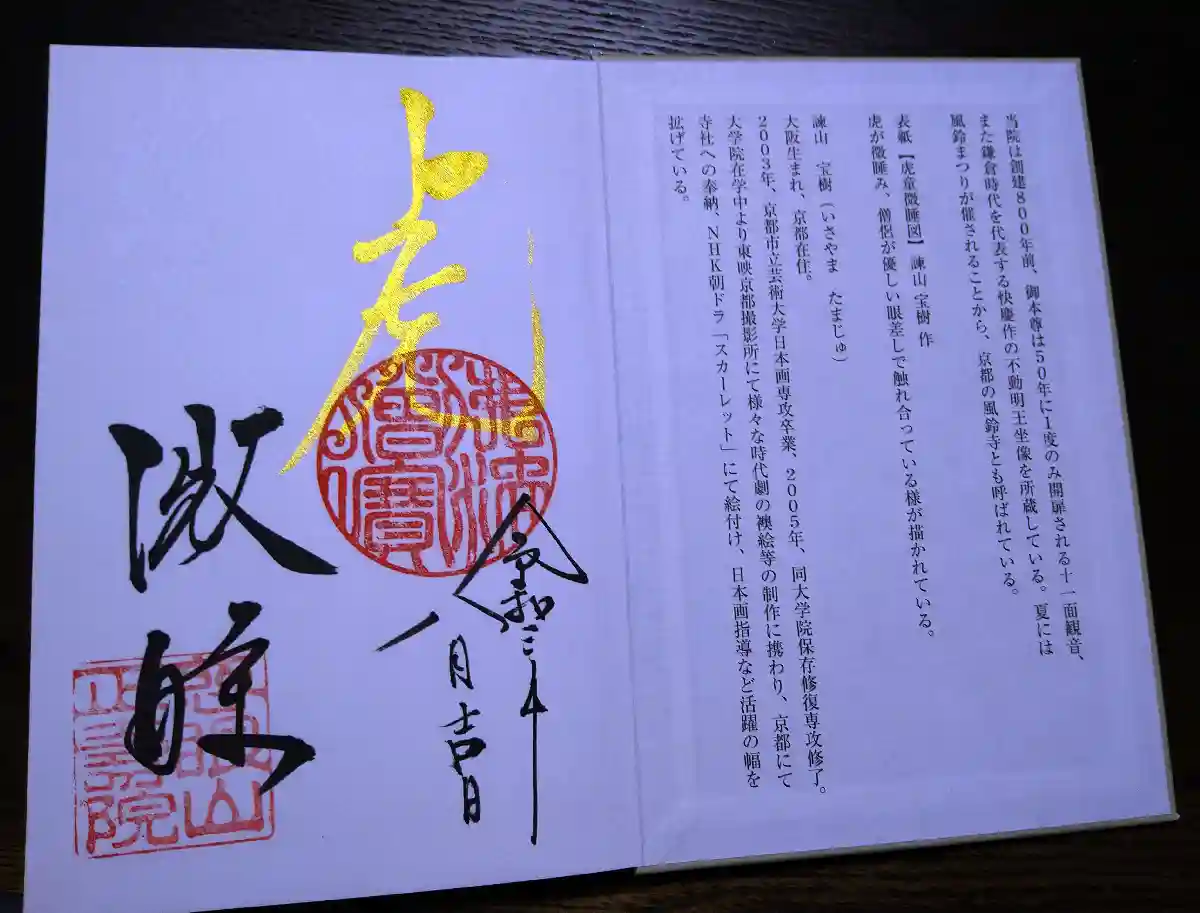 当院は創建800年前、御本尊は50年に1度のみ開扉される十一面観音、
また鎌倉時代を代表する快慶作の不動明王坐像を所蔵している。夏には
風鈴まつりが催されることから、京都の風鈴寺とも呼ばれている。
表紙【虎童微睡図】 諫山 宝樹 作
虎が微睡み、僧侶が優しい眼差しで触れ合っている様が描かれている。
諫山 宝樹(いさやま たまじゅ)
大阪生まれ、京都在住。
2003年、京都市立芸術大学日本画専攻卒業、2005年、同大学院保存修復専攻修了。
大学院在学中より東映京都撮影所にて様々な時代劇の襖絵等の制作に携わり、京都にて
寺社への奉納、NHK朝ドラ「スカーレット」にて絵付け、日本画指導など活躍の幅を
拡げている。
令和三年
八月吉日
虎
佛法
僧寶
微睡
慈眼山
正寿院